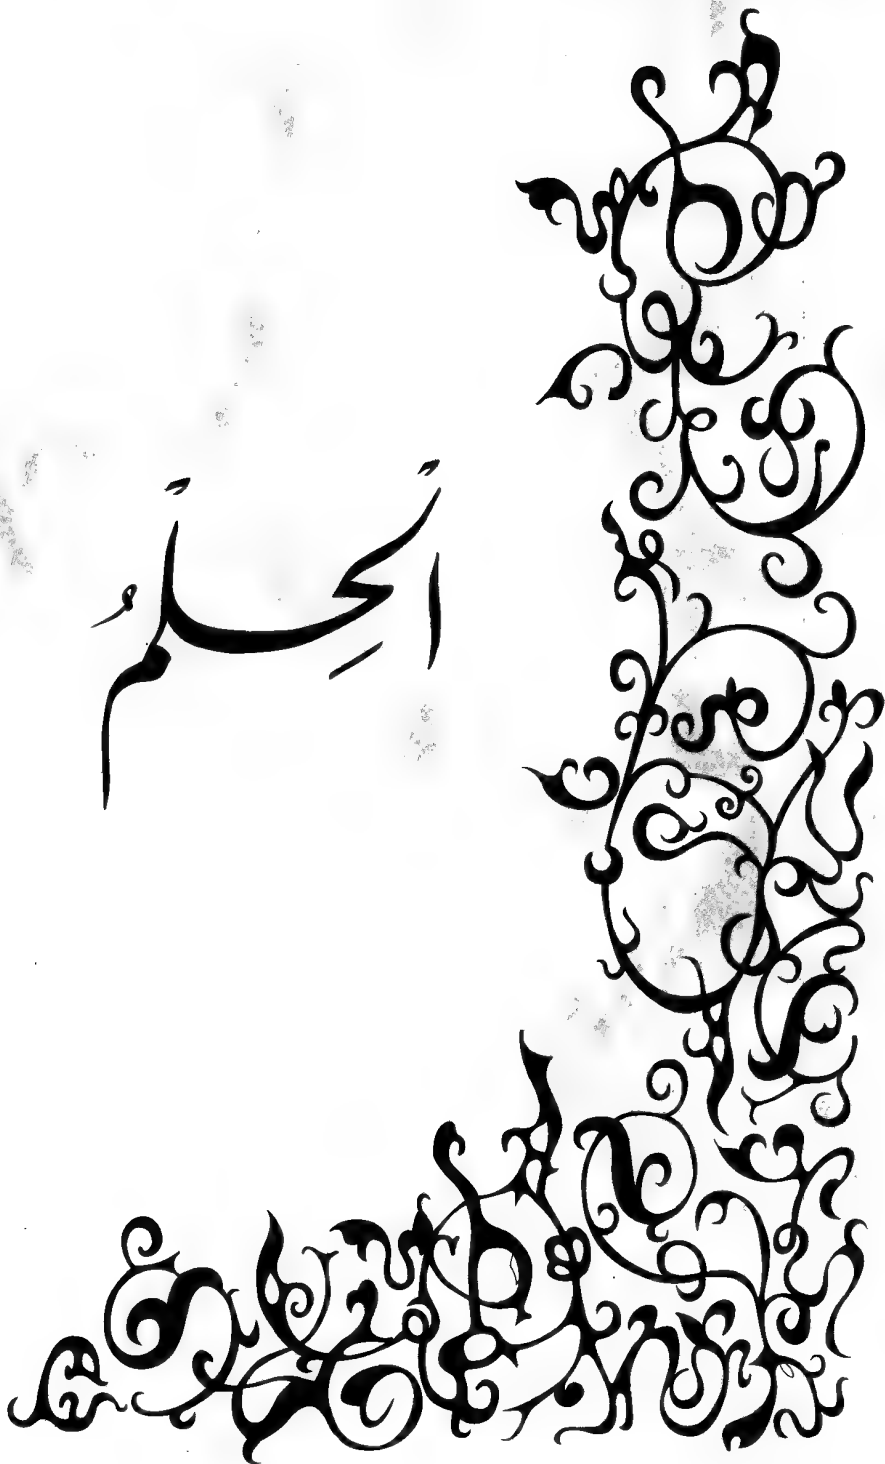 الْحِلْمُ